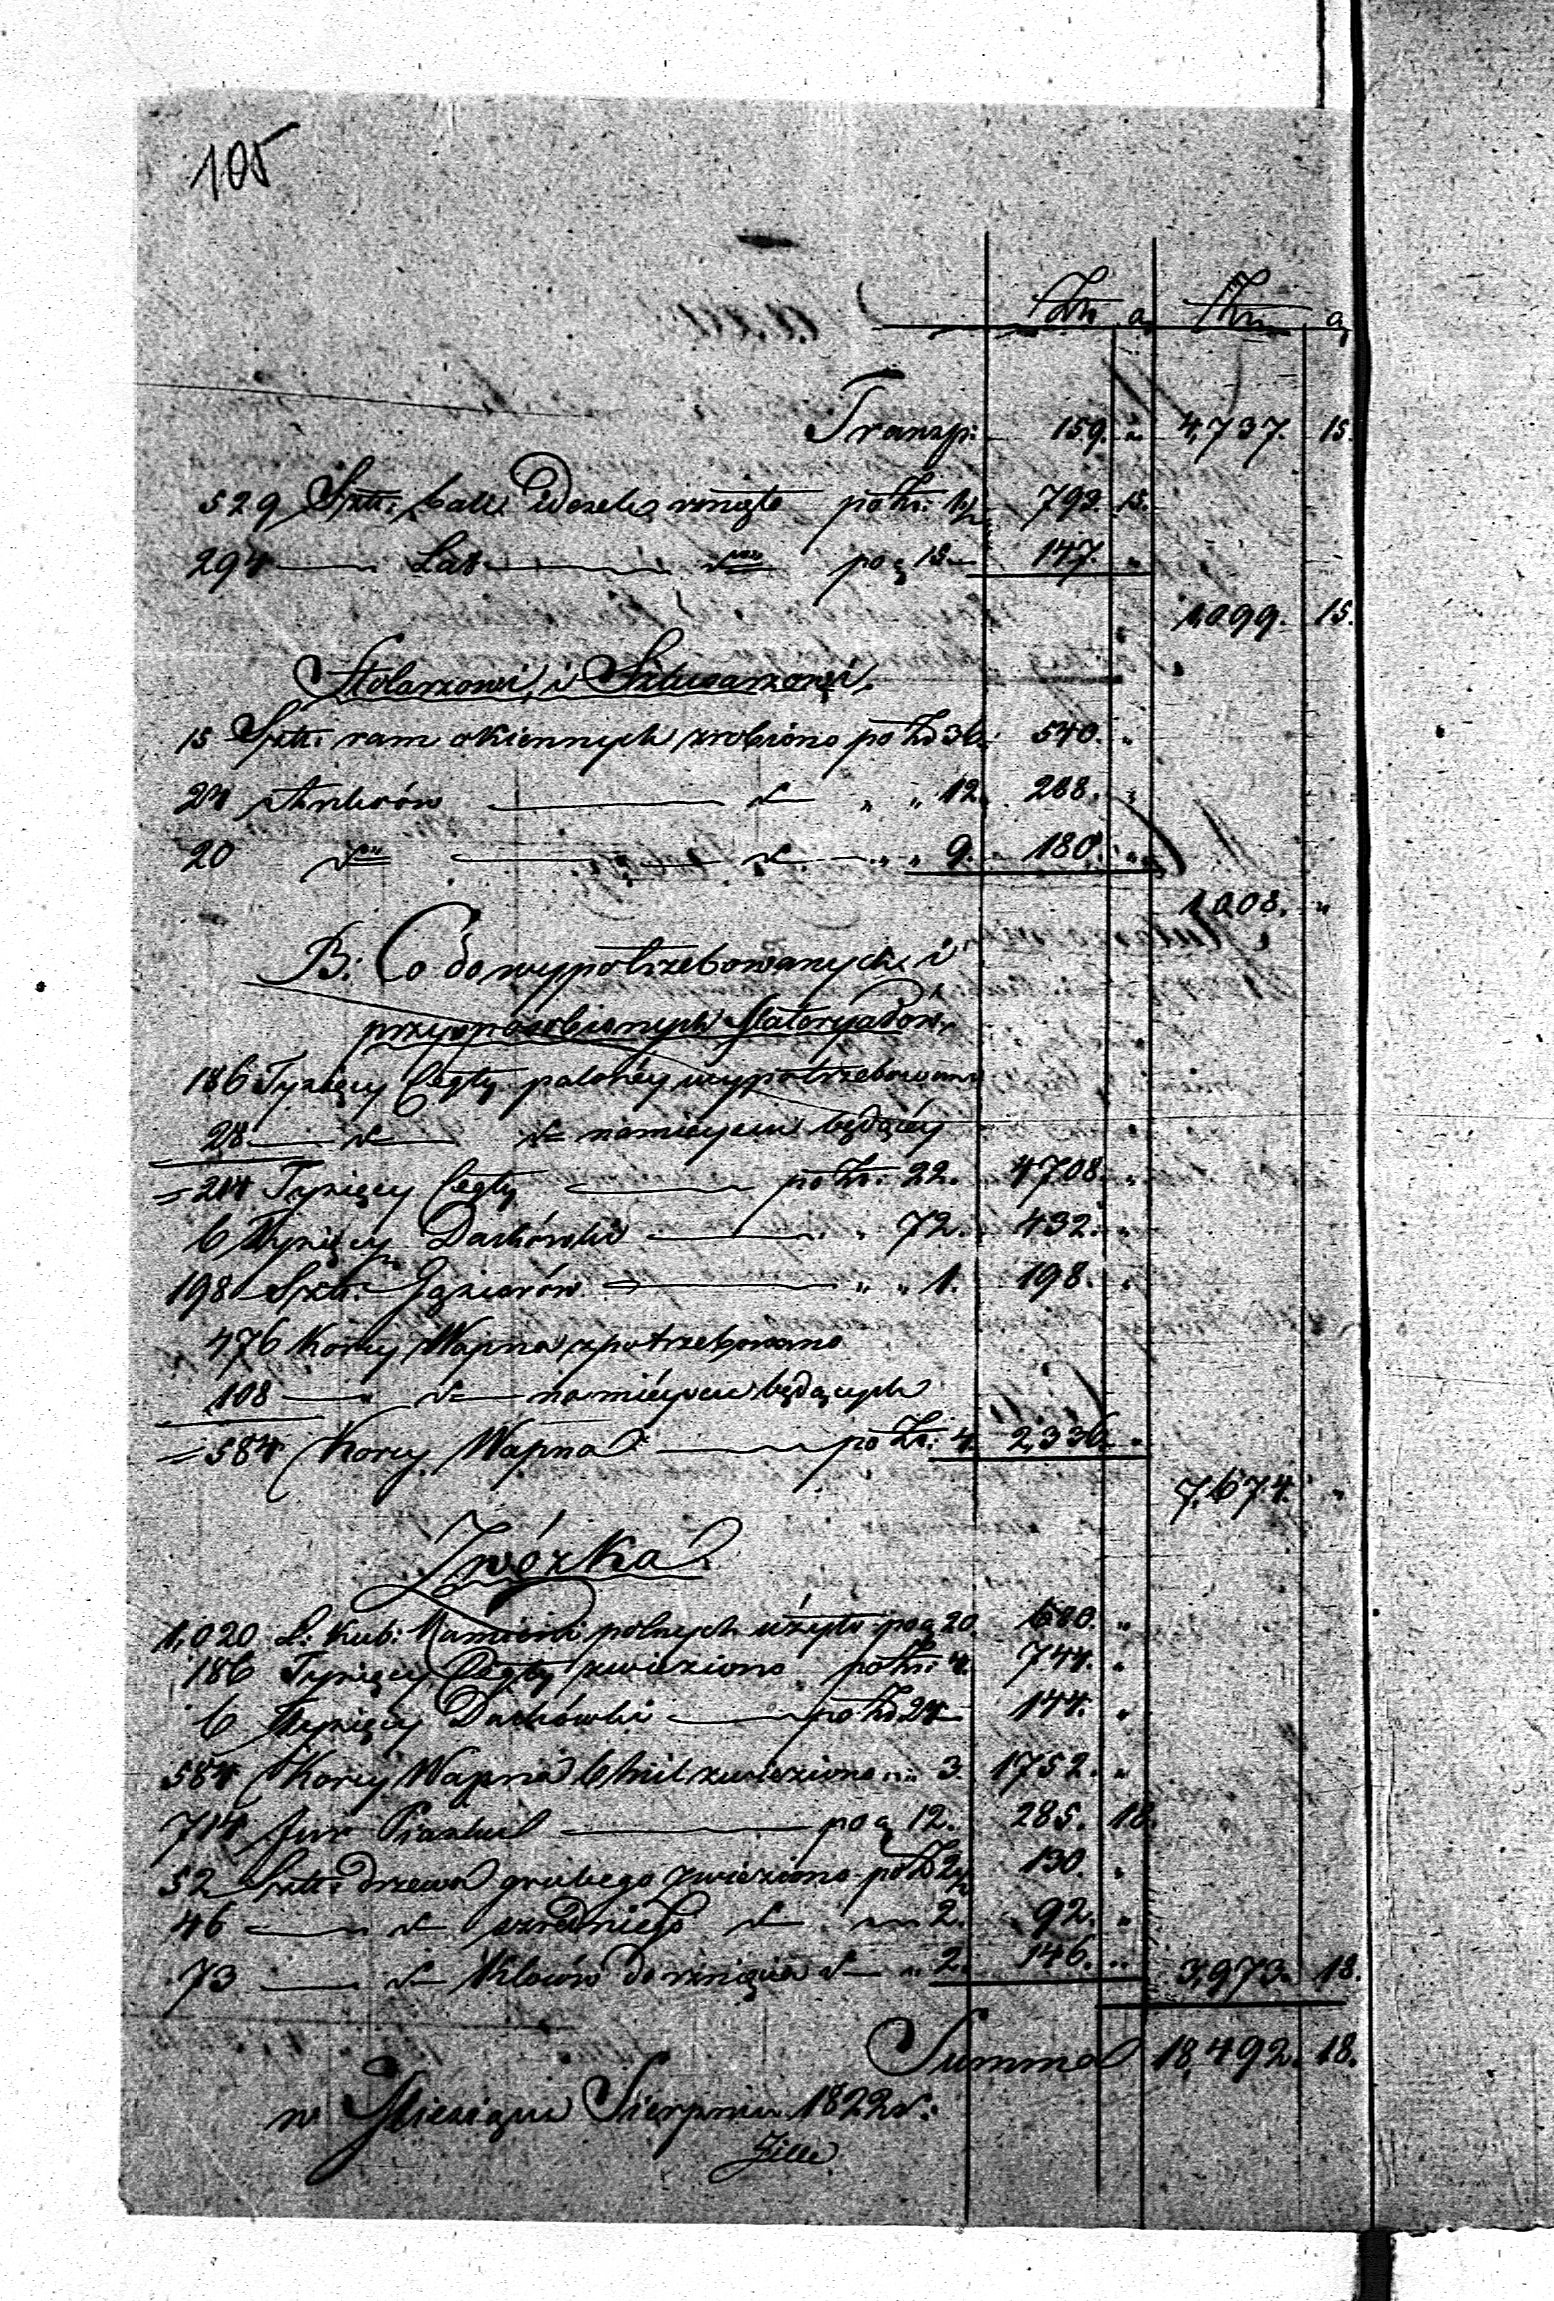 105
Złn g Złn g
Transp: 159. „ 4,737. 15.
529 Sztk. bali i Desek rznięto po Złn: 1½ 793. 15.
294 — Łat — d<sup>tto</sup> po g 15 — 147. „
1,099. 15.
Stolarzowi, i Szlusarzowi.
15 Sztk: ram okiennych zrobiono po Zł 36. 540. „
24 Ankrów — d° — „ „ 12. 288. „
20 d<sup>tto</sup> — d° — „ „ 9. 180. „
1,008. „
B: Co do wypotrzebowanych i
przysposobionych Materyałów.
186 Tysięcy Cegły paloney wypotrzebowano
28 — d° — d° na mieyscu będącéy
= 214 Tysięcy Cegły — po Zł: 22. 4708. „
6 Tysięcy Dachówki — „ 72. 432. „
198 Sztk: Gąsiorów — „ „ 1. 198. „
476 Korcy Wapna spotrzebowano
108 — d° — na mieyscu będących
= 584 Korcy Wapna — po Zł: 4. 2,336. „
7,674. „
Zwózka
1,020 Ł: kub: Kamieni polnych użyto po g 20. 680. „
186 Tysięcy Cegły zwieziono po Złn: 4. 744. „
6 Tysięcy Dachówki — po Zł 24 — 144. „
584 Korcy Wapna 6 mil zwieziono „ „ 3. 1752. „
714 fur Piasku — po g 12. 285. 18.
52 Sztk: drzewa grubego zwieziono po Zł 2½ 130. „
46 — d° — szredniego d° — „ 2. 92. „
73 — d° — Kloców do rznięcia d° — „ 2. 146. „ 3,973. 18.
Summa 18,492. 18.
w Miesiącu Sierpniu 1822 r:
Zille